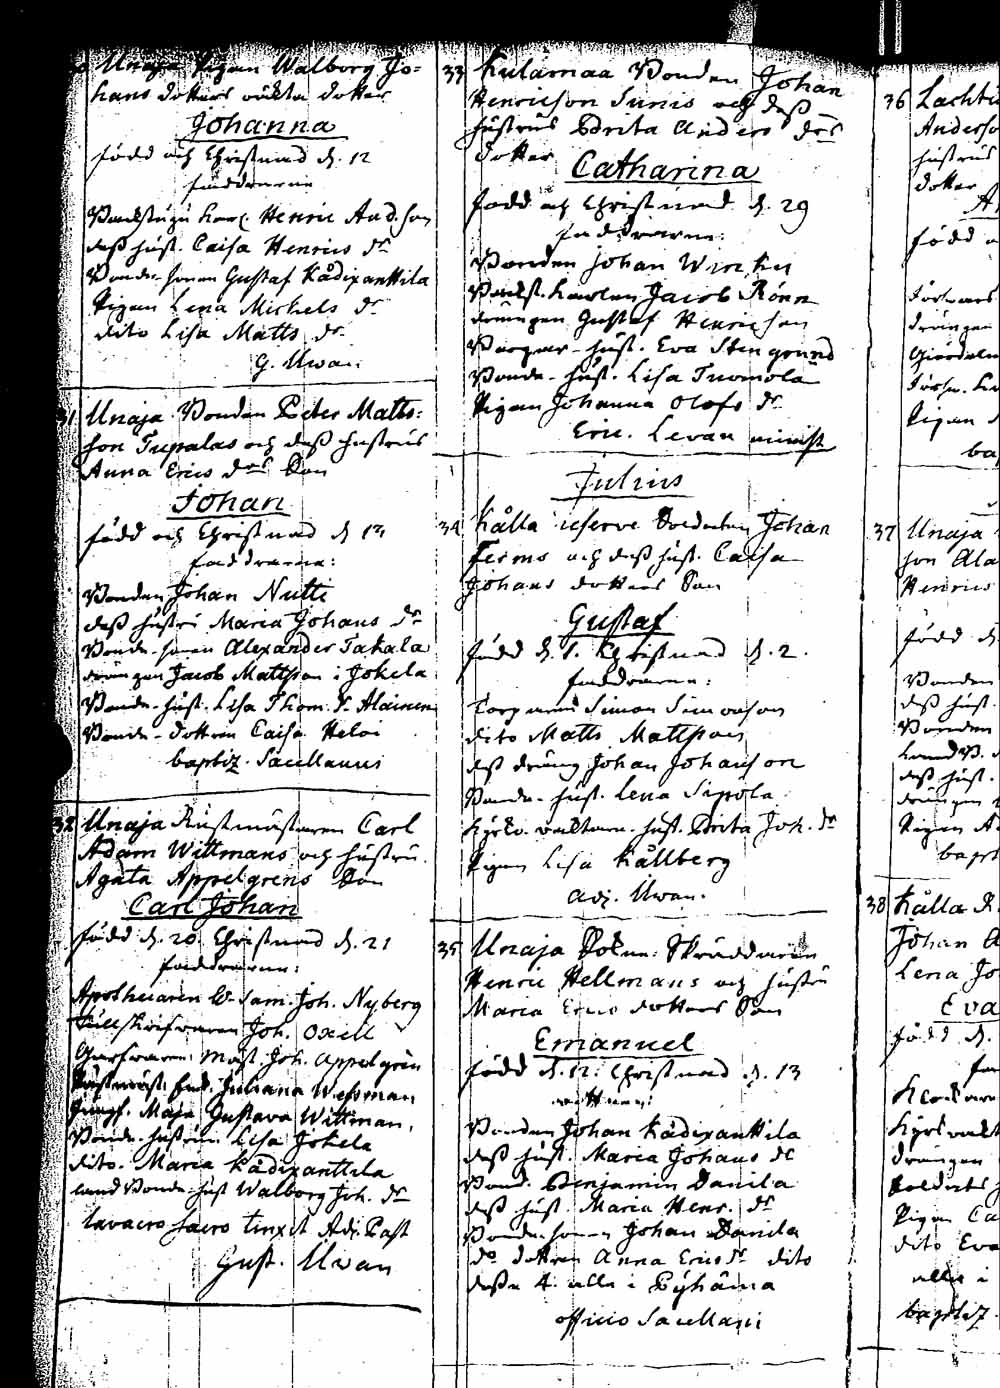 Unaja Pigan Walborg Jo=
hans dotters oäkta dotter
Johanna
född och Christnad d. 12
faddrarne
Backstugu karl Henric And.son
dess hust. Caisa Henrics dr
Bonde-sonen Gustaf Kådixanttila
Pigan Lena Michels dr
dito Lisa Matts dr
G. Uwan.
31 Unaja Bonden Peter Matts=
son Tupalas och dess hustrus
Anna Erics drs Son
Johan
född och Christnad d 13
faddrarne:
Bonden Johan Nutti
dess hustru Maria Johans dr
Bonde-sonen Alexander Takala
drängen Jacob Mattsson i Jokela
Bonde-hust. Lisa Thom. dr Alainen
Bonde-dottren Caisa Heloi
baptiz. Sacellanus
32 Unaja Rustmästaren Carl
Adam Wittmans och hustru
Agata Appelgrens Son
Carl Johan
född d. 20. Christnad d. 21
faddrarne:
Apothecaren Sam. Joh. Nyberg
Tullskrifwaren Joh. Oxell
Garfwaren Mäst. Joh. Appelgrén
Juliana Wessman
Jungf. Maja Gustava Wittman,
Bonde-hustrun Lisa Jokela
dito. Maria Kådixanttila
land Bonde-hust Walborg Joh. dr
lavacro sacro tinxit Adj. Past
Gust. Uwan
33 Kulamaa Bonden Johan
Henricson Sunis och dess
hustrus Brita Anders drs
dotter
Catharina
född och Christnad d. 29
faddrarne:
Bonden Johan
Backst. karlen Jacob Rönn
drängen Gustaf Henricson
Borgar-hust. Eva Stengrund
Bonde-hust. Lisa Tuomola
Pigan Johanna Olofs dr
Eric. Levan minist
Julius
34 Kålla reserve Soldaten Johan
Ferms och dess hust. Caisa
Johans dotters Son
Gustaf
född d. 1. Christnad d. 2.
faddrarne:
Torparen Simon Simonson
dito Matts Mattsson
dess dräng Johan Johanson
Bonde-hust. Lena Sipola
Kyrko-waktare-hust. Brita Joh. dr
Pigan Lisa Kållberg
Adj. Uwan.
35 Unaja Sokne-Skräddaren
Henric Hellmans och hustru
Maria Erics dotters Son
Emanuel
född d. 12. Christnad d. 13
Bonden Johan Kådixanttila
dess hust. Maria Johans dr
Bond. Benjamin Danila
dess hust. Maria Henr. dr
Bonde-sonen Johan Danila
do dottren Anna Erics dr dito
desse 4. alla i Pyhäma
officio Sacellani
36 Lachti
Anderso
hustrus
dotter
A
född o
drängen
Pigan
ba
37 Unaja
son Ala
Henrics
född d.
Bonden
dess hust.
Bonden
dess hust.
drängen
Pigan A
bapt
38 Kålla R
Johan A
Lena Jo
Eva
född d.
fa
drängen
Pigan Ca
dito Eva
alla i
baptiz.